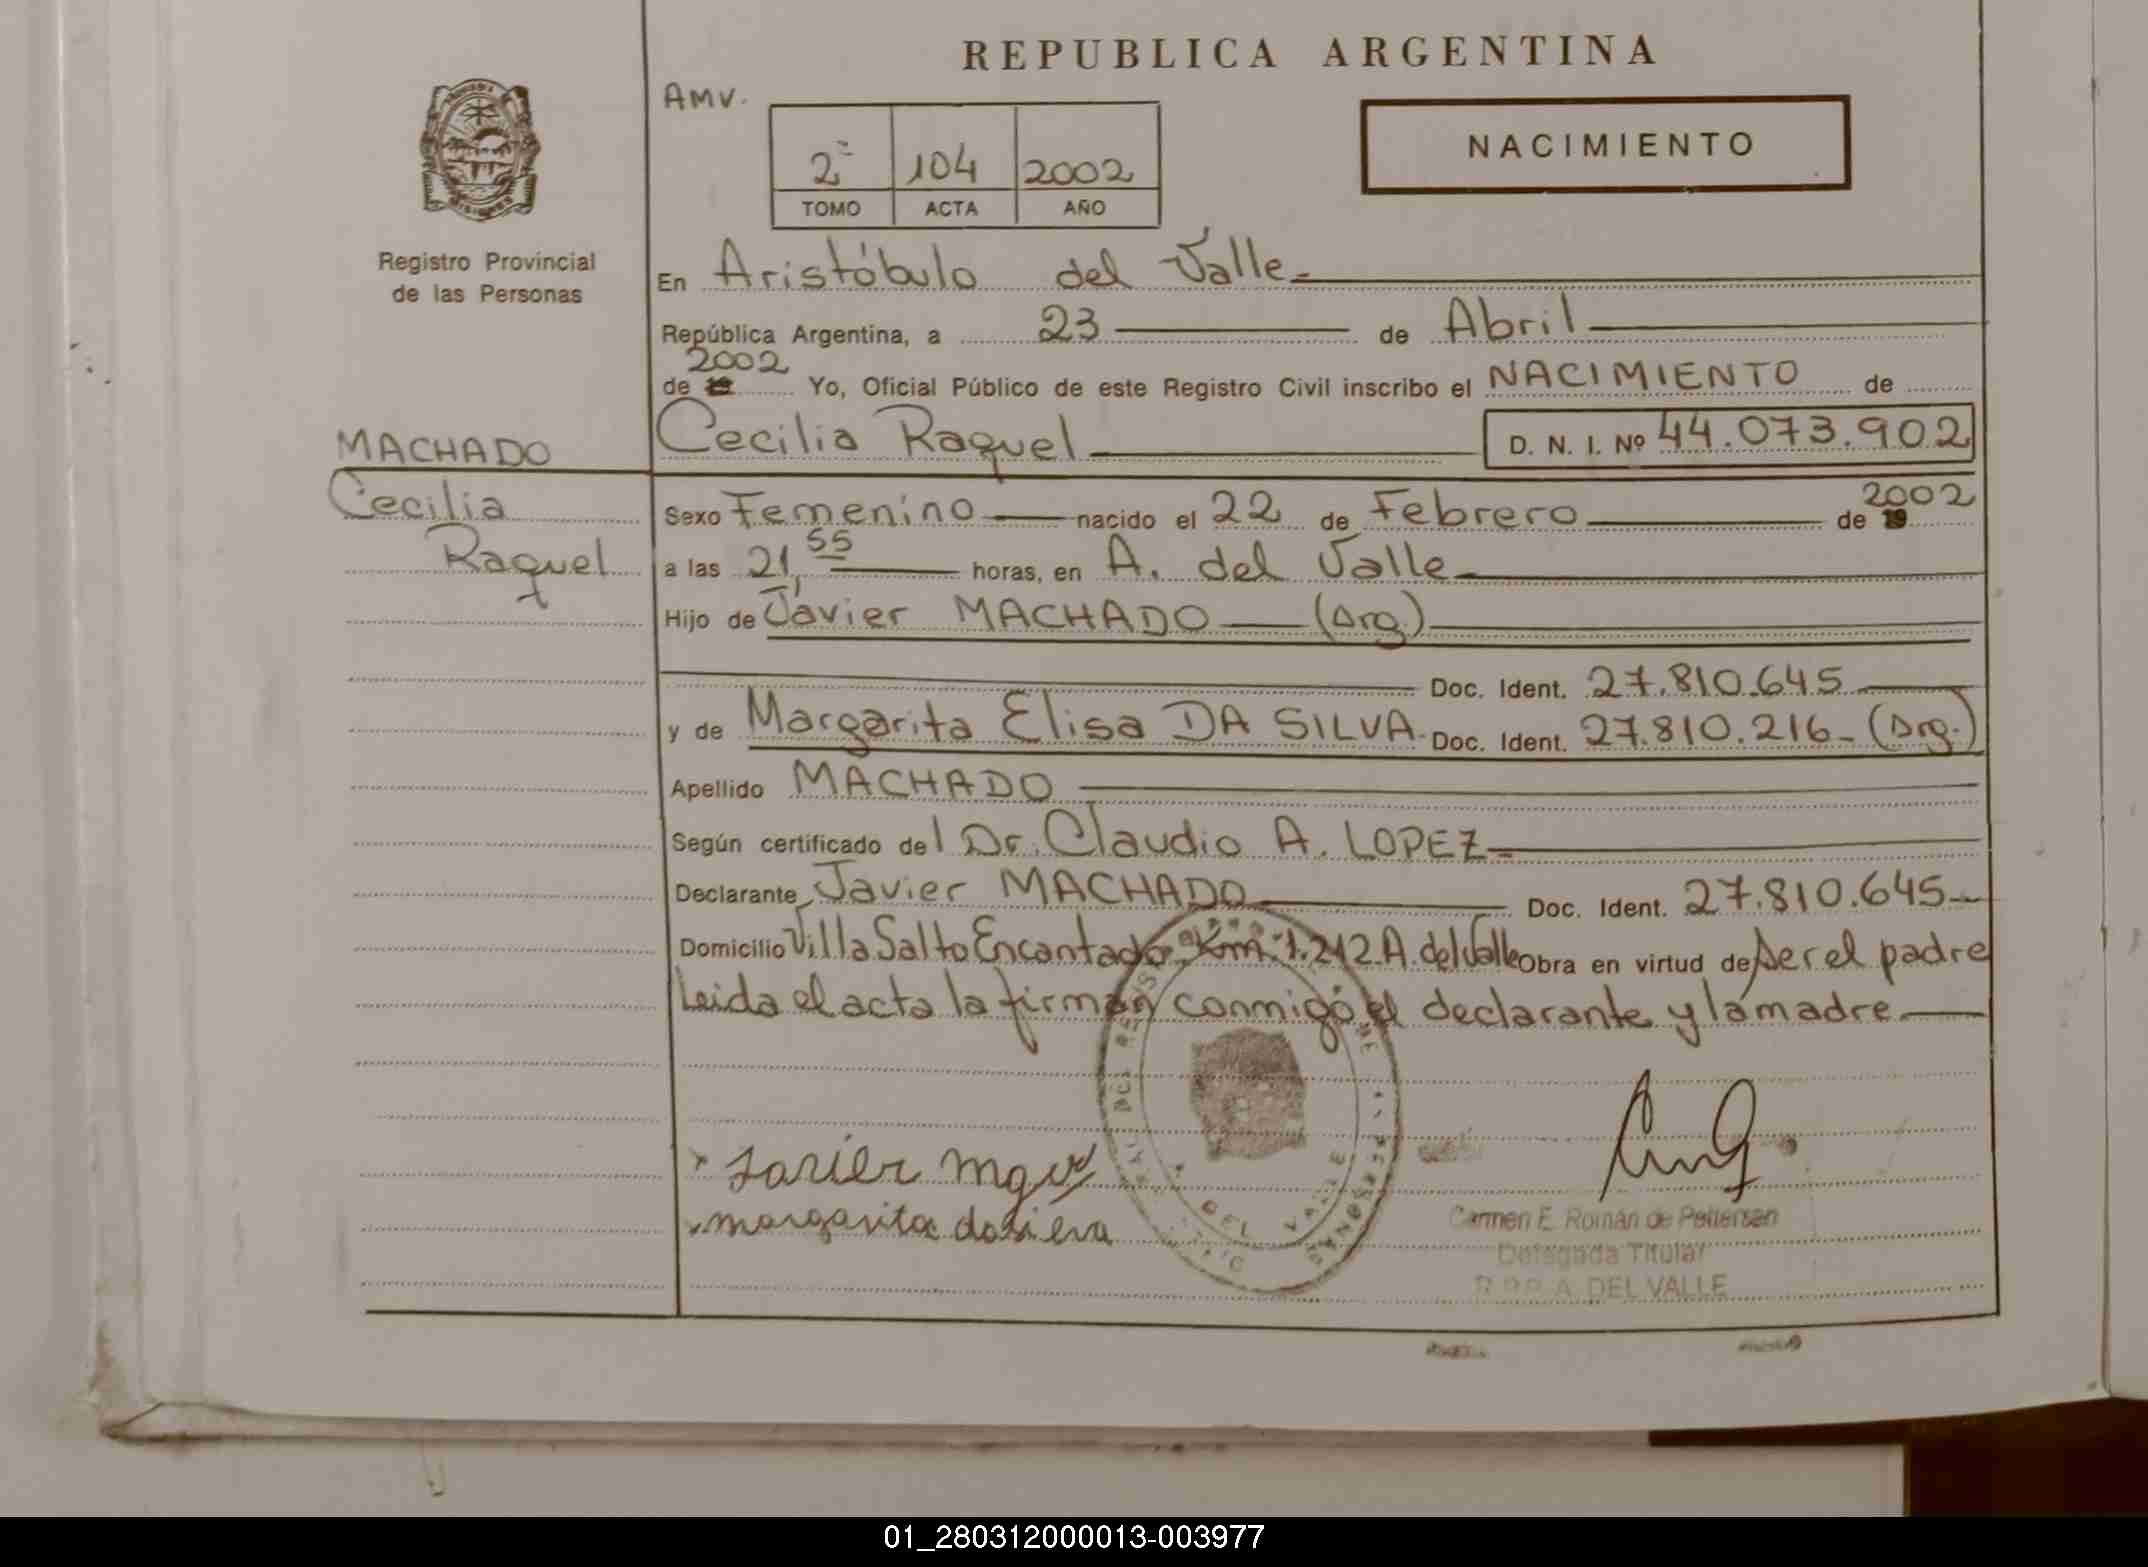 REPUBLICA ARGENTINA
AMV.
NACIMIENTO
2º 104 2002
TOMO ACTA AÑO
Registro Provincial
de las Personas
En Aristóbulo del Valle
República Argentina, a 23 de Abril
2002
de 19 Yo, Oficial Público de este Registro Civil inscribo el NACIMIENTO de
MACHADO
Cecilia Raquel D. N. I. Nº 44.073.902
Cecilia
Raquel
Sexo Femenino nacido el 22 de Febrero de 19 2002
a las 21,55 horas, en A. del Valle
Hijo de Javier MACHADO (Arg.)
Doc. Ident. 27.810.645
y de Margarita Elisa DA SILVA. Doc. Ident. 27.810.216 (Arg.)
Apellido MACHADO
Según certificado del Dr. Claudio A. LOPEZ
Declarante Javier MACHADO Doc. Ident. 27.810.645
Domicilio Villa Salto Encantado Km. 1.212 A. del Valle Obra en virtud de ser el padre
Leida el acta la firman conmigo el declarante y la madre
Javier
margarita dasilva
DEL VALLE
Carmen E. Román de Pettersen
Delegada Titular
R.P.P. A. DEL VALLE
01_280312000013-003977